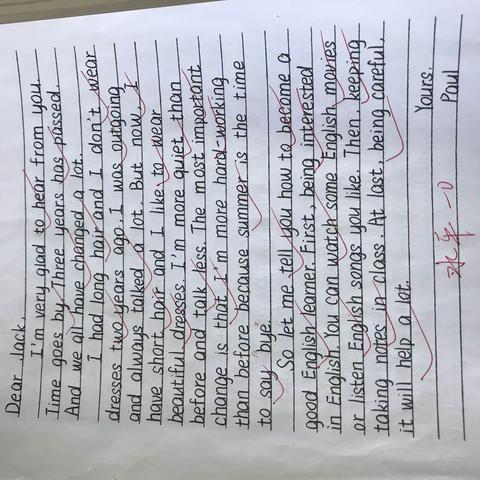 Dear Jack,
I'm very glad to hear from you.
Time goes by. Three years has passed.
And we all have changed a lot.
I had long hair and I don't wear
dresses two years ago. I was outgoing
and always talked a lot. But now I
have short hair and I like to wear
beautiful dresses. I'm more quiet than
before and talk less. The most important
change is that I'm more hard-working
than before because summer is the time
to say bye.
So let me tell you how to become a
good English learner. First, being interested
in English. You can watch some English movies
or listen English songs you like. Then, keeping
taking notes in class. At last, being careful.
it will help a lot.
Yours,
Paul